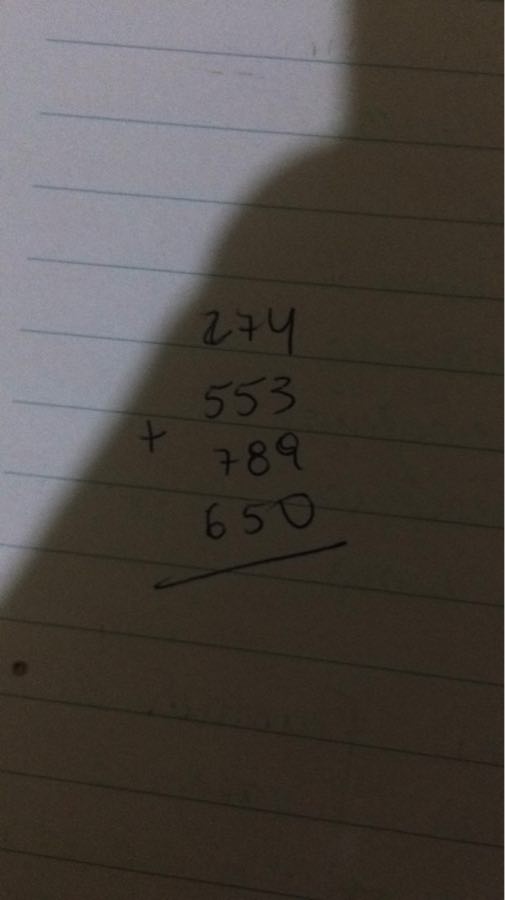 274
553
+
789
650